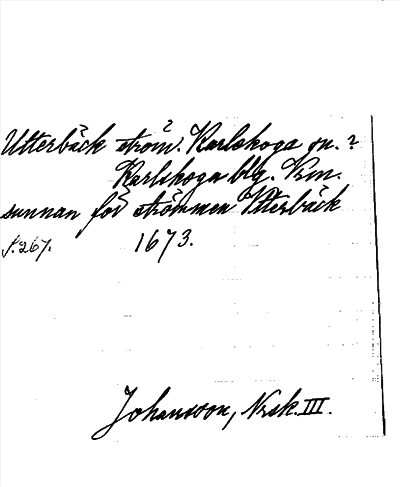 Utterbäck ström. Karlskoga sn. ?
Karlskoga blg. Vrm.
sunnan för strömmen Utterbäck
s. 267. 1673.
Johansson, Nrsk. III.